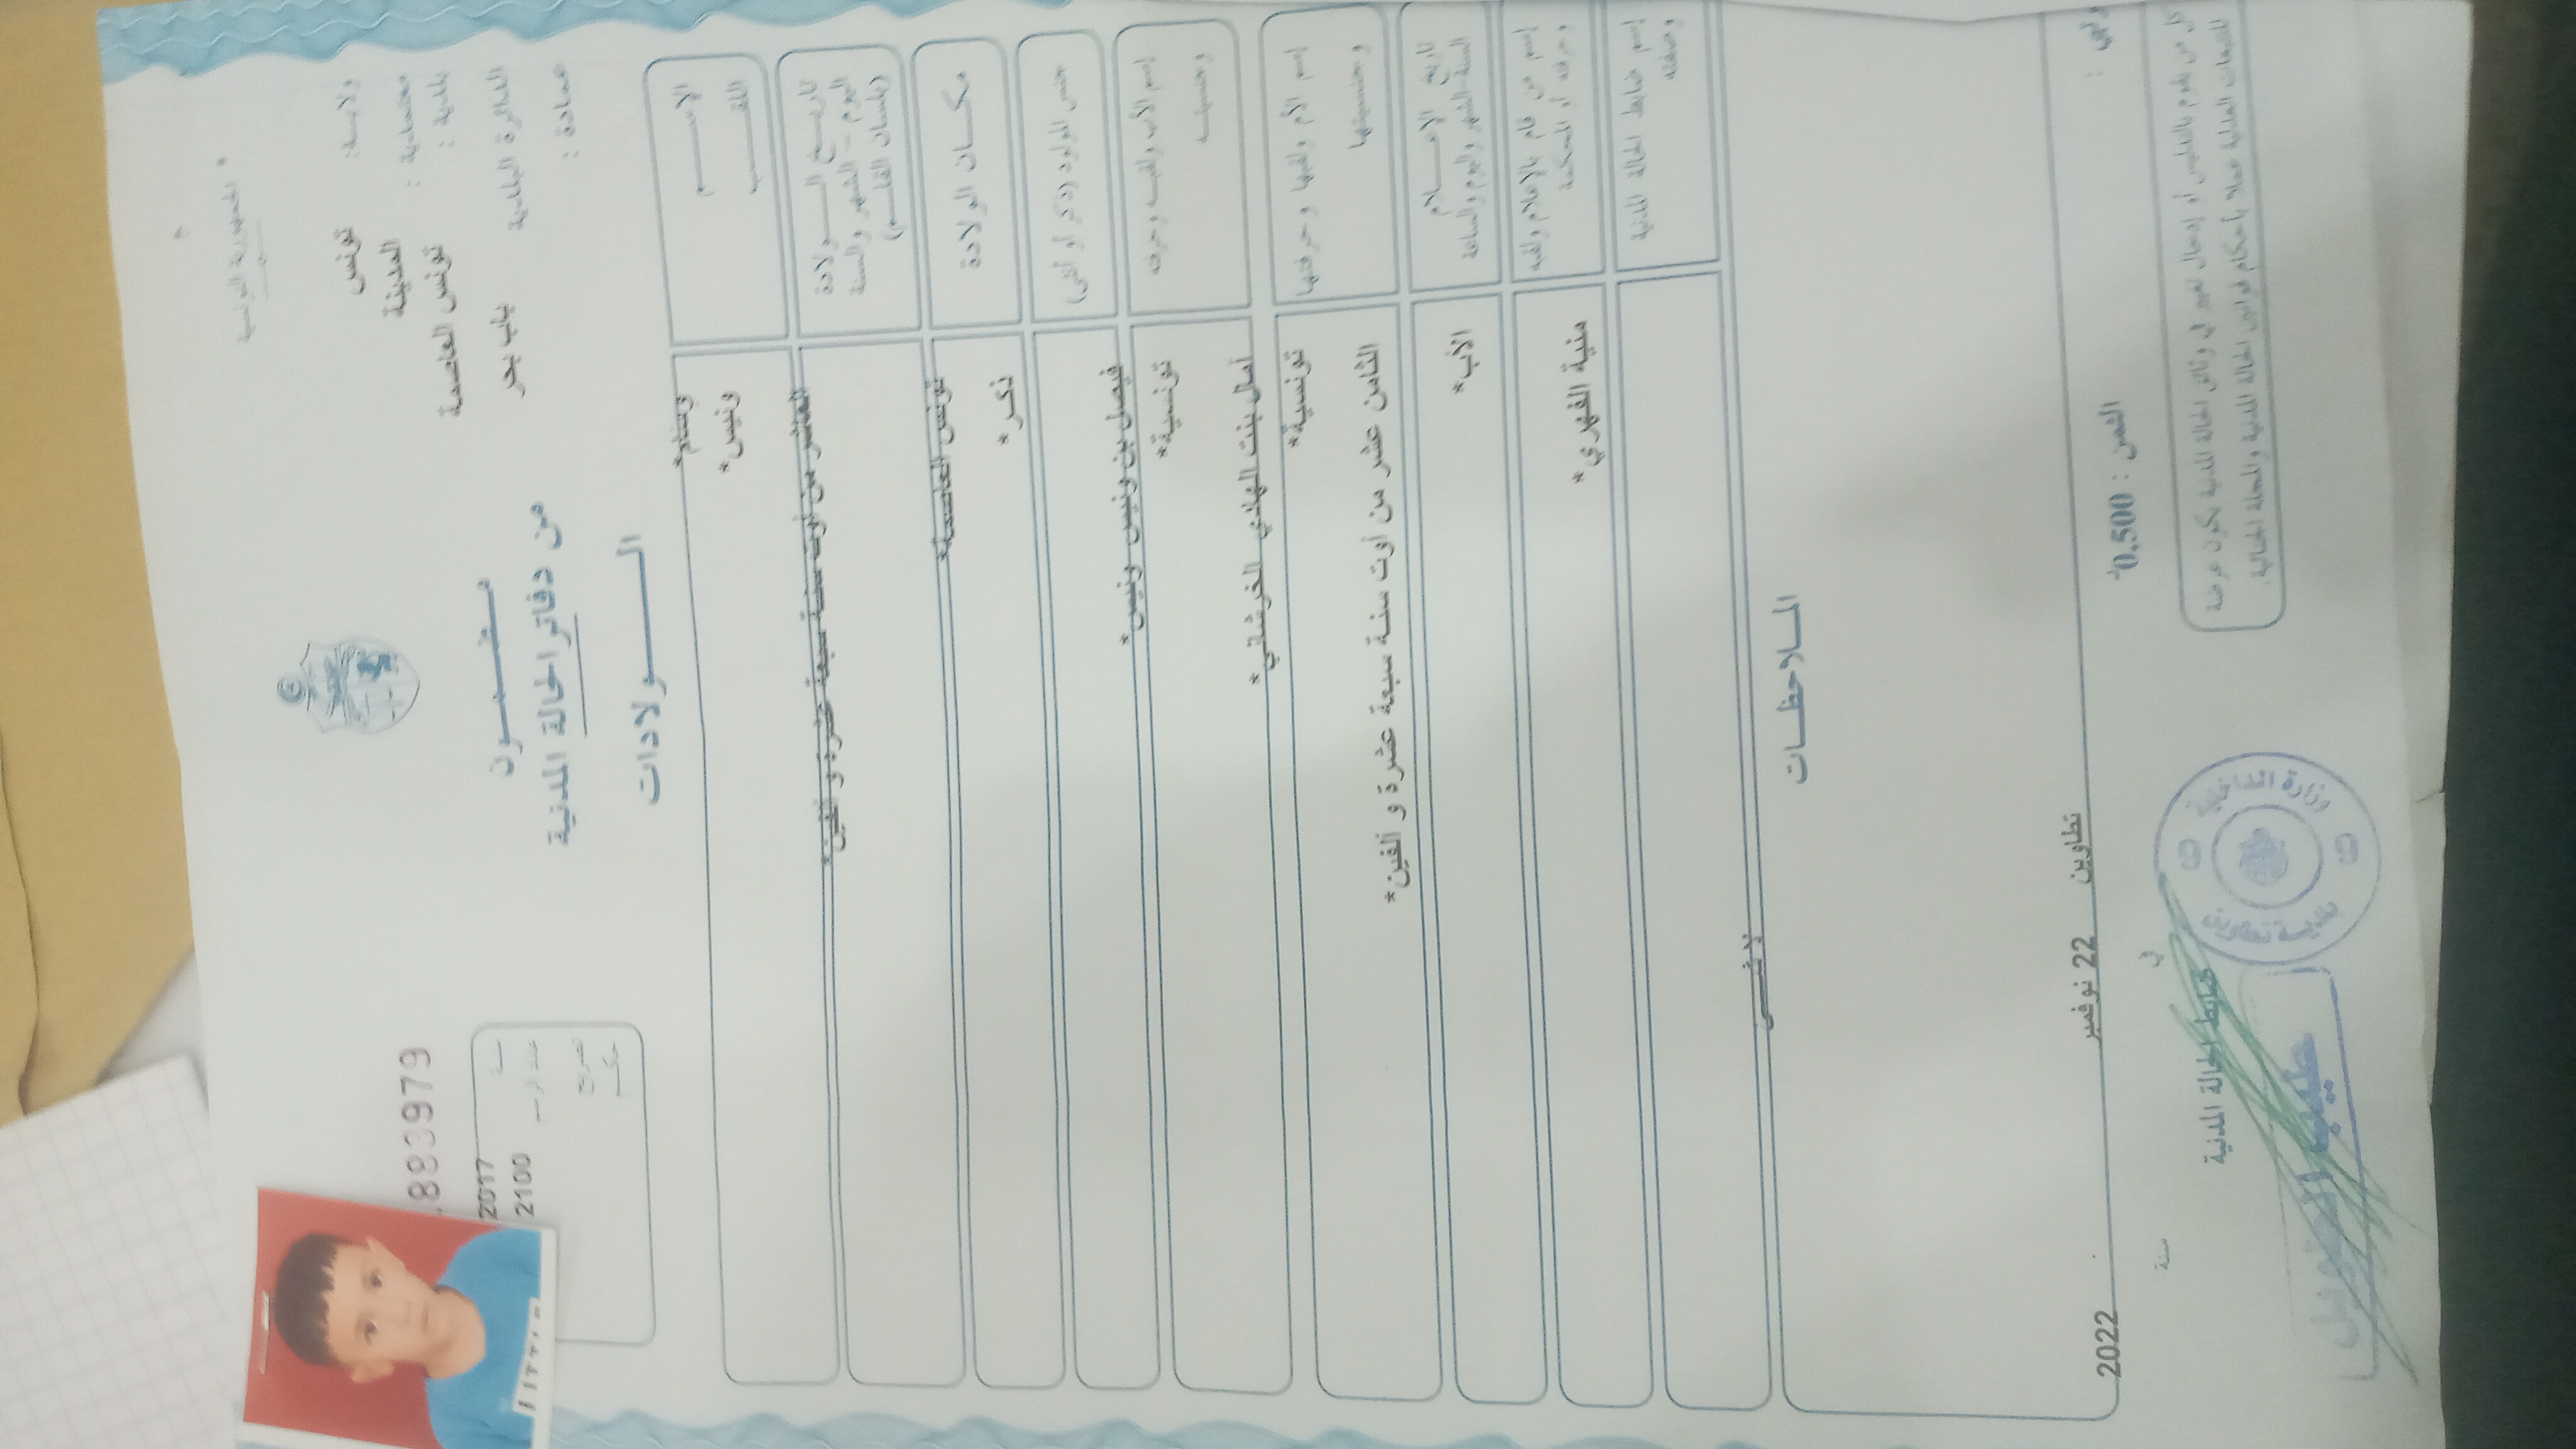 الجمهورية التونسية
ولاية: تونس
معتمدية : المدينة
بلدية : تونس العاصمة
الدائرة البلدية باب بحر
عمادة :
883979
مضمون
من دفاتر الحالة المدنية
الولادات
سنة 2017
عدد الرسم 2100
تصريح
حكم
الاسم وسام*
اللقب ونيس*
تاريخ الولادة
اليوم - الشهر والسنة
(بلسان القلم)
العاشر من أوت سنة سبعة عشرة و ألفين*
مكان الولادة تونس العاصمة*
جنس المولود (ذكر أو أنثى) ذكر*
إسم الأب ولقبه وحرفته فيصل بن ونيس ونيس*
وجنسيته تونسية*
إسم الأم ولقبها وحرفتها أمال بنت الهادي الخرشاني*
وجنسيتها تونسية*
تاريخ الإعلام
السنة والشهر واليوم والساعة
الثامن عشر من أوت سنة سبعة عشرة و ألفين*
إسم من قام بالإعلام ولقبه
وحرفته أو المحكمة
الأب*
إسم ضابط الحالة المدنية
وصفته
منية الفهري*
الملاحظات
لا شيء
تطاوين 22 نوفمبر 2022
في سنة
الثمن : 0,500د
ضابط الحالة المدنية
وزارة الداخلية
بلدية تطاوين
كل من يقوم بالتدليس أو إدخال تغيير في وثائق الحالة المدنية يكون عرضة
للتتبعات العدلية عملا بأحكام قوانين الحالة المدنية والمجلة الجنائية.